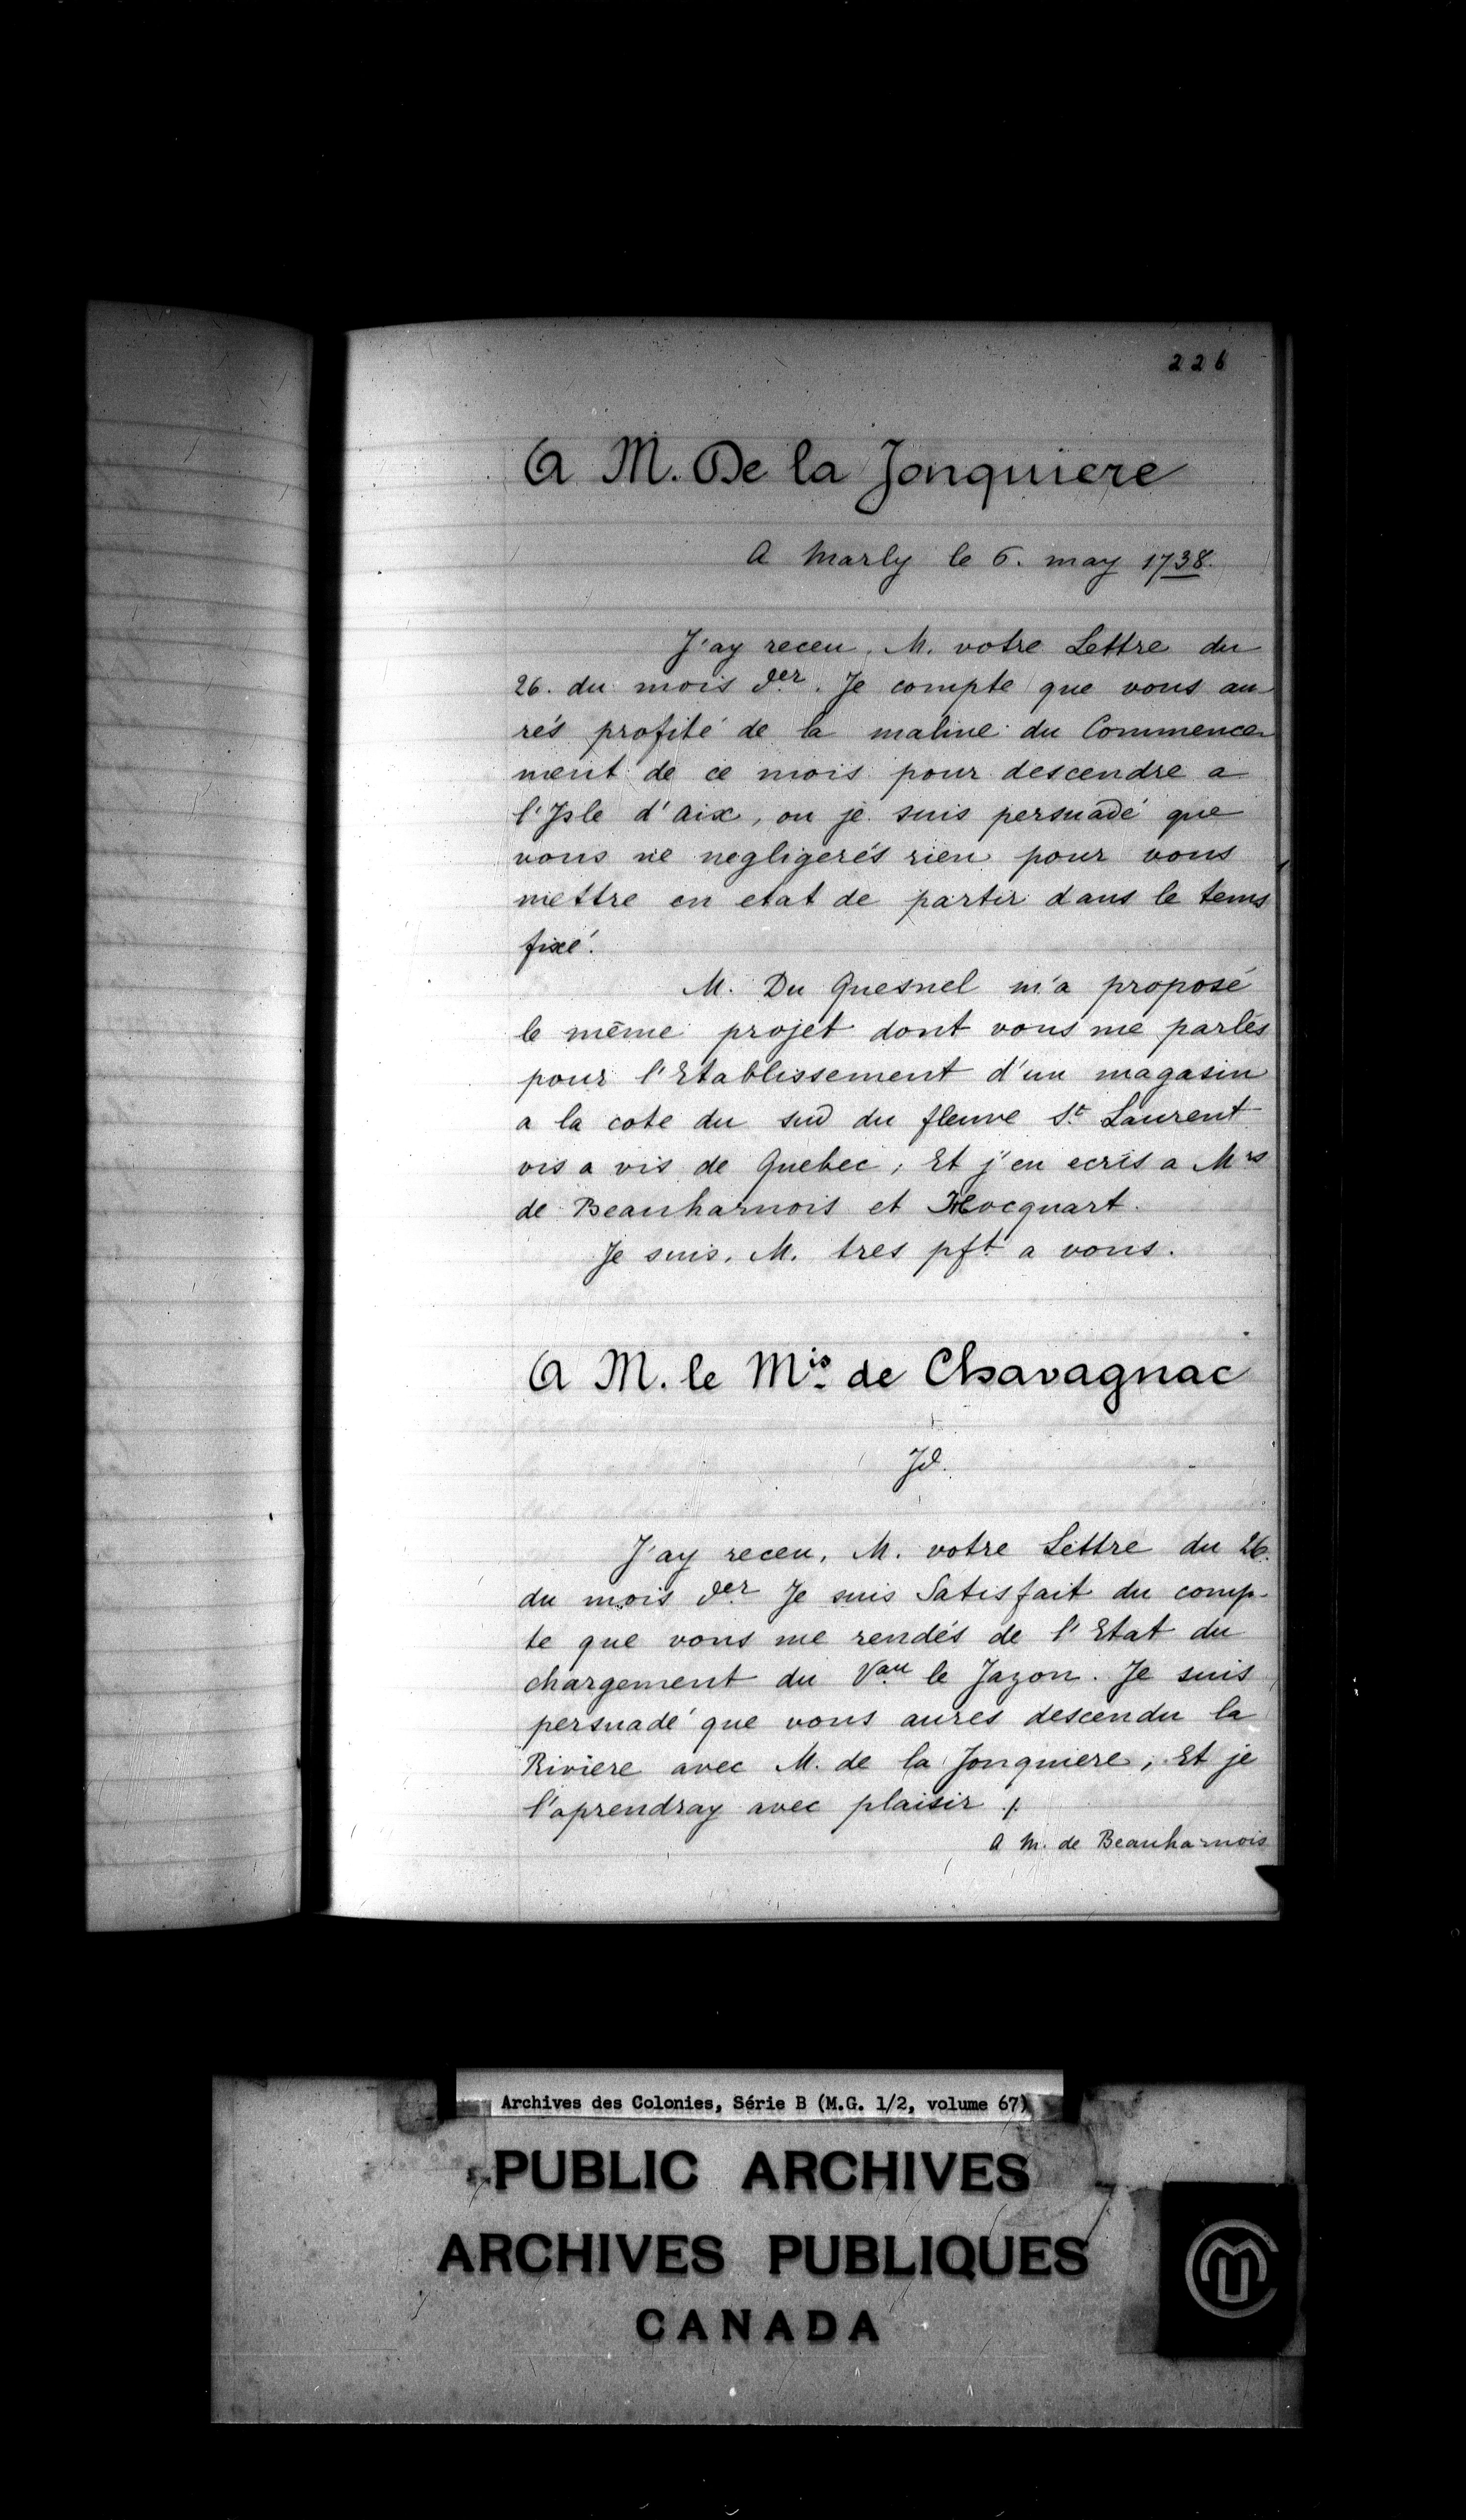 226
A M. De la Jonquiere
A Marly le 6. may 1738.
J'ay receu, M. votre Lettre du
26. du mois der. Je compte que vous au
rés profité de la maline du Commence
ment de ce mois pour descendre a
l'Isle d'Aix, ou je suis persuadé que
vous ne negligerés rien pour vous
mettre en etat de partir dans le tems
fixé.
M. Du Quesnel m'a proposé
le même projet dont vous me parlés
pour l'Etablissement d'un magasin
a la cote du sud du fleuve St Laurent
vis a vis de Quebec; Et j'en ecris a Mrs
de Beauharnois et Hocquart.
Je suis, M. tres pft a vous.
A M. le Mis de Chavagnac
Id.
J'ay receu, M. votre Lettre du 26.
du mois der Je suis Satisfait du comp-
te que vous me rendés de l'Etat du
chargement du Vau le Jazon. Je suis
persuadé que vous aures descendu la
Riviere avec M. de la Jonquiere, Et je
l'aprendray avec plaisir ./.
A M. de Beauharnois
Archives des Colonies, Série B (M.G. 1/2, volume 67)
PUBLIC ARCHIVES
ARCHIVES PUBLIQUES
CANADA